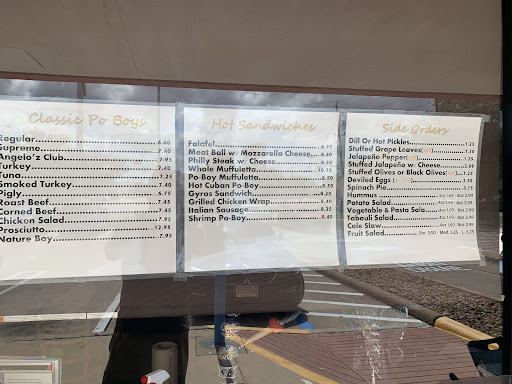 Classic Po Boys
Regular 6.60
Supreme 7.40
Angelo'z Club 7.95
Turkey 7.40
Tuna 7.45
Smoked Turkey 7.40
Pigly 6.75
Roast Beef 7.45
Corned Beef 7.45
Chicken Salad 7.95
Prosciutto 12.95
Nature Boy 7.95
Hot Sandwiches
Falafel 6.95
Meat Ball w. Mozzarella Cheese 6.40
Philly Steak w/ Cheese 8.50
Whole Muffuletta 10.75
Po-Boy Muffuletta 8.50
Hot Cuban Po-Boy 8.50
Gyros Sandwich 8.25
Grilled Chicken Wrap 8.40
Italian Sausage 8.25
Shrimp Po-Boy 9.40
Side Orders
Dill Or Hot Pickles 1.25
Stuffed Grape Leaves 1.10
Jalapeño Pepper 1.25
Stuffed Jalapeño w. Cheese 2.99
Stuffed Olives or Black Olives 1.25
Deviled Eggs 1.25
Spinach Pie 3.75
Hummus 4oz 1.60 8oz 2.99
Potato Salad 4oz 1.60 8oz 2.99
Vegetable & Pasta Sala 4oz 1.60 8oz 2.99
Tabouli Salad 4oz 1.60 8oz 2.99
Cole Slaw 4oz 1.60 8oz 2.99
Fruit Salad Sm. 3.50 Med. 5.25 L. 6.25